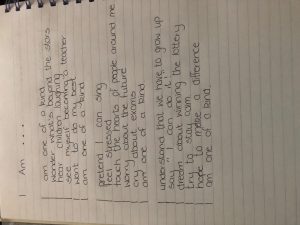 I Am ....
I am one of a kind
I wonder what's beyond the stars
I hear children laughing
I see myself becoming a teacher
I want to do my best
I am one of a kind
I pretend I can sing
I feel stressed
I touch the hearts of people around me
I worry about the future
I cry about exams
I am one of a kind
I understand that we have to grow up
I say "I can do it"
I dream about winning the lottery
I try to stay calm
I hope to make a difference
I am one of a kind.